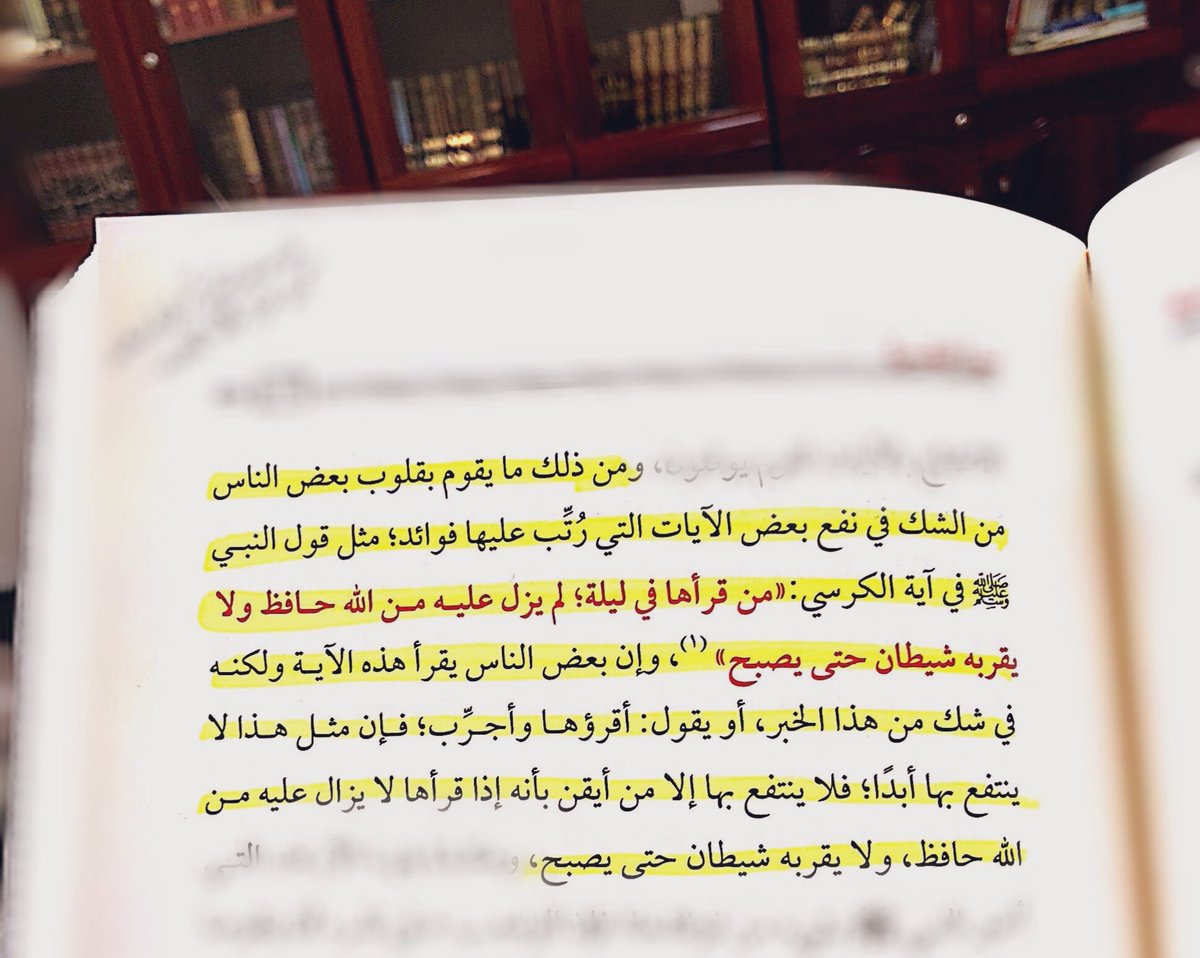 ومن ذلك ما يقوم بقلوب بعض الناس
من الشك في نفع بعض الآيات التي رُتِّب عليها فوائد؛ مثل قول النبي
ﷺ في آية الكرسي: «من قرأها في ليلة؛ لم يزل عليه من الله حافظ ولا
يقربه شيطان حتى يصبح» (١)، وإن بعض الناس يقرأ هذه الآية ولكنه
في شك من هذا الخبر، أو يقول: أقرؤها وأجرِّب؛ فإن مثل هذا لا
ينتفع بها أبدًا؛ فلا ينتفع بها إلا من أيقن بأنه إذا قرأها لا يزال عليه من
الله حافظ، ولا يقربه شيطان حتى يصبح، التي